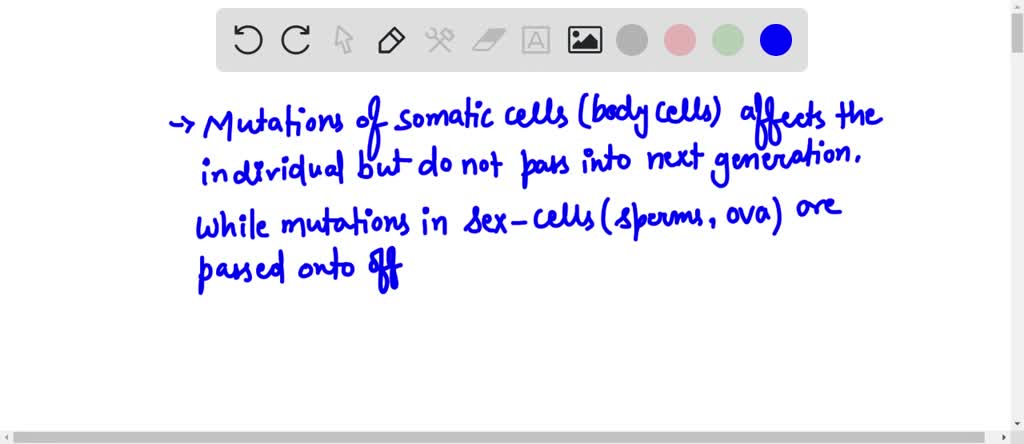 → Mutations of somatic cells (body cells) affects the
individual but do not pass into next generation.
While mutations in sex-cells (sperms, ova) are
passed onto off